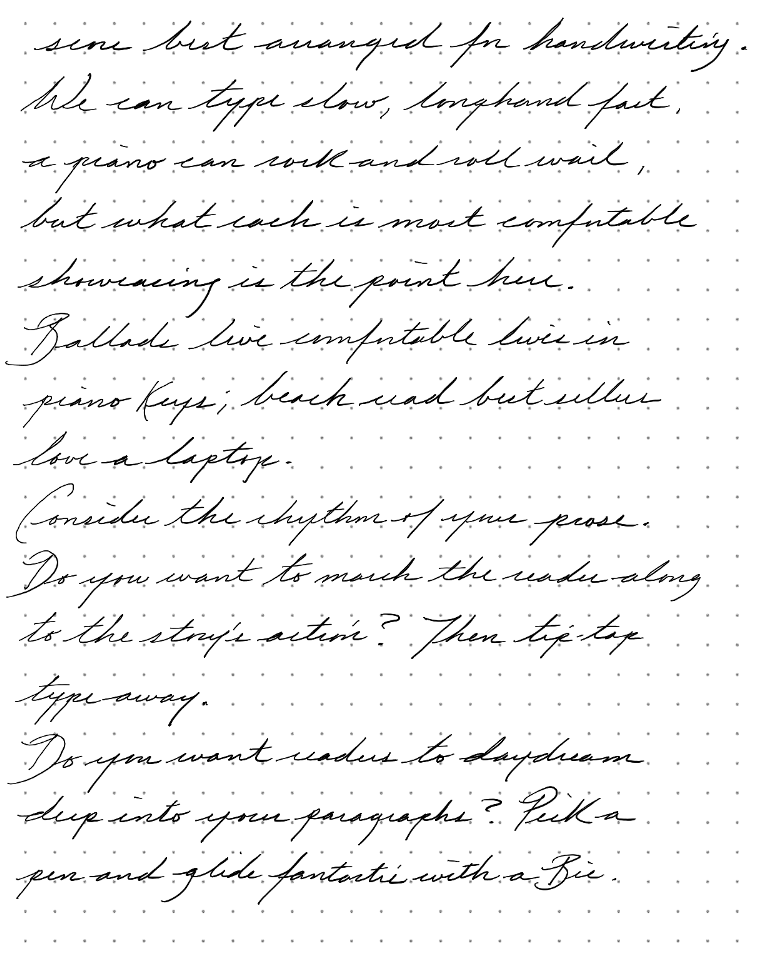 score best arranged for handwriting.
We can type slow, longhand fast,
a piano can rock and roll wail,
but what each is most comfortable
showcasing is the point here.
Ballads live comfortable lives in
piano keys; beach read best sellers
love a laptop.
Consider the rhythm of your prose.
Do you want to march the reader along
to the story's action? Then tip-tap
type away.
Do you want readers to daydream
deep into your paragraphs? Pick a
pen and glide fantastic with a Bic.